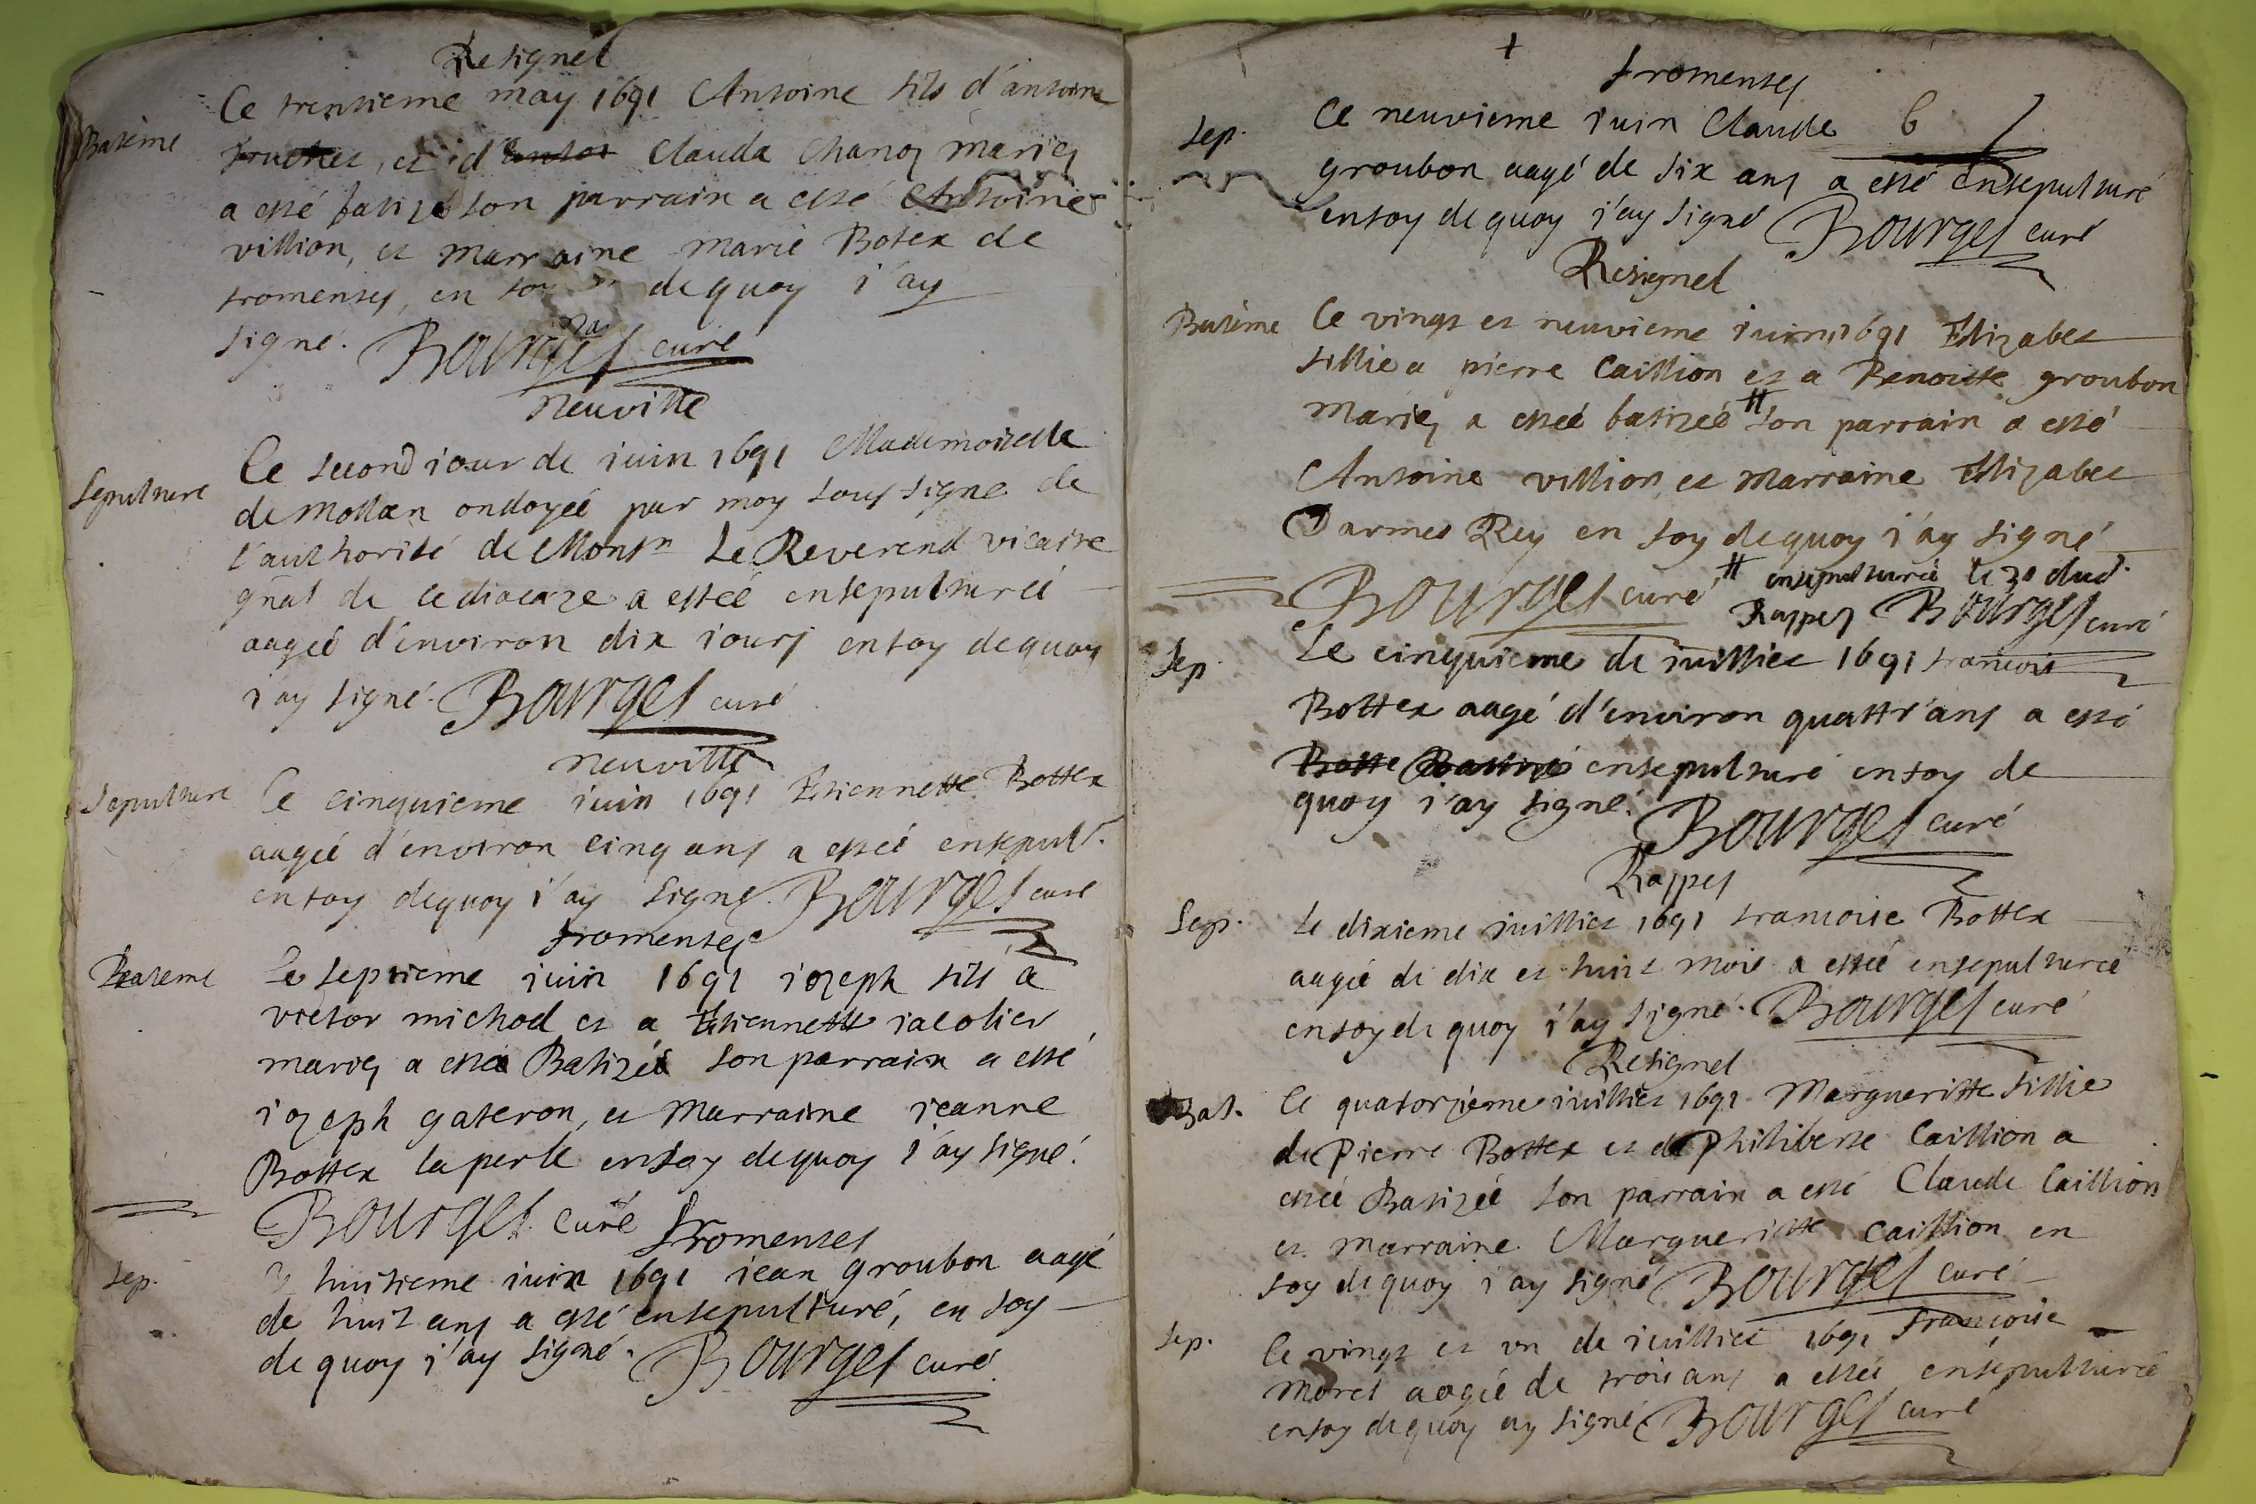 Resignel
Batême
Ce trentieme may 1691 Antoine fils d'antoine
fruchet, et d' Clauda Chanoz mariez
a esté batizé son parrain a esté Antoine
villion, et marraine marie Botex de
fromentes, en foy de quoy i'ay
signé. Bourges curé
neuville
Sepulture
Ce second iour de iuin 1691 Mademoizelle
de mollan ondoyée par moy soussigné de
l'authorité de Monsr Le Reverend vicaire
gñal de ce dioceze a estéé ensepulturéé
aagéé d'environ dix iours en foy de quoy
i'ay signé. Bourges curé
neuville
Sepulture
Ce cinquieme iuin 1691 Etiennette Bottex
aagéé d'environ cinq ans a estéé ensepult.
en foy de quoy i'ay signé. Bourges curé
fromentes
Bateme
Le septieme iuin 1691 iozeph fils a
victor michod et a Etiennette iacolier
mariez a esté Batizé son parrain a esté
iozeph gateron, et marraine ieanne
Bottex la perle en foy de quoy i'ay signé.
Bourges curé
fromentes
Sep.
huitieme iuin 1691 iean groubon aagé
de huit ans a esté ensepulturé, en foy
de quoy i'ay signé. Bourges curé
+
fromentes
Sep.
Ce neuvieme iuin Claude 6
groubon aagé de six ans a esté ensepulturé
en foy de quoy i'ay signé Bourges curé
Resignel
Batême
Ce vingt et neuvieme iuin 1691 Elizabet
fillie a pierre Caillion et a Benoitte groubon
mariez a estéé batizéé # son parrain a esté
Antoine villion et marraine Elizabet
Darmes Rey en foy de quoy i'ay signé
Bourges curé # ensepulturéé le 30 dud.
Rappes Bourges curé
Sep.
Le cinquieme de iuilliet 1691 francois
Bottex aagé d'environ quattr'ans a esté
Botte Batizé ensepulturé en foy de
quoy i'ay signé. Bourges curé
Rappes
Sep.
Le dixieme iuilliet 1691 francoise Bottex
aagéé de dix et huit mois a estéé ensepulturéé
en foy de quoy i'ay signé. Bourges curé
Resignel
Bat.
Ce quatorzieme iuilliet 1691 Margueritte fillie
de Pierre Bottex et de Philiberte Caillion a
estéé Batizéé son parrain a esté Claude Caillion
et marraine Margueritte Caillion en
foy de quoy i'ay signé Bourges curé
Sep.
Ce vingt et un de iuilliet 1691 francoise
morel aagéé de trois ans a estéé ensepulturéé
en foy de quoy ay signé Bourges curé